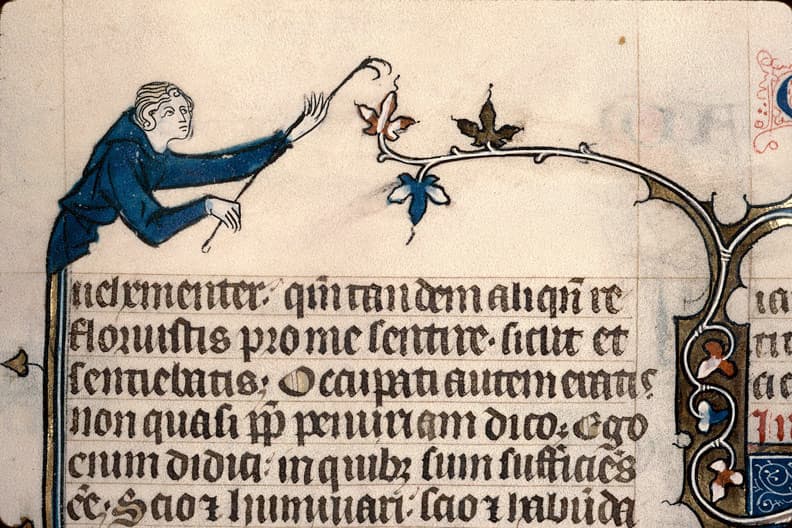 uehementer. qm̄ tandem aliqn̄ re
floruistis pro me sentire. sicut et
sentiebatis. Occupati autem eratis
non quasi pp̄ penuriam dico. Ego
enim didici. in quibꝫ sum sufficiēs
ēē. Scio ⁊ humiliari. scio ⁊ habūda